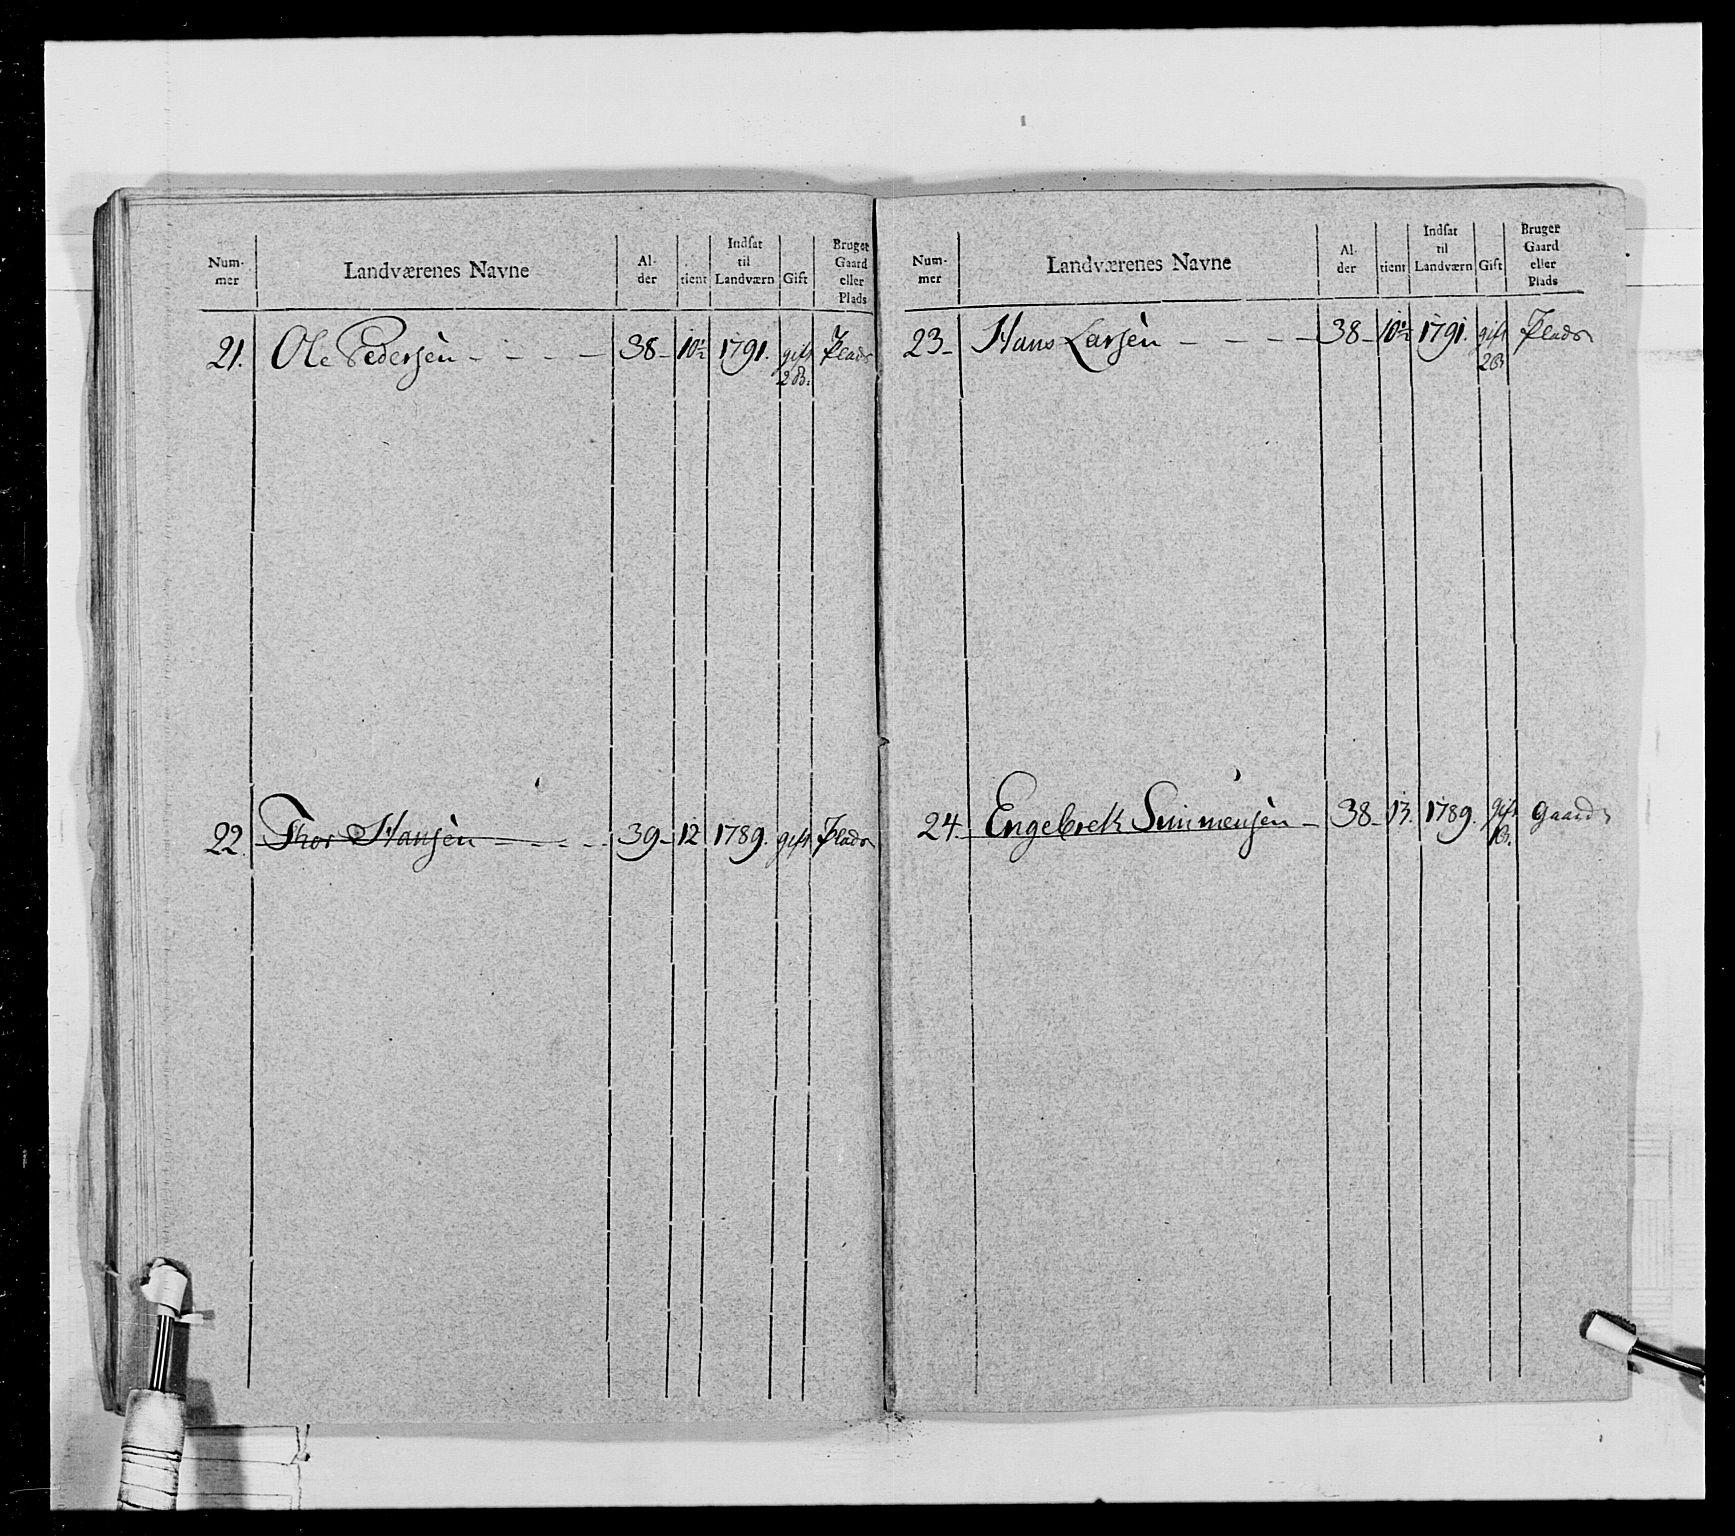 Num-
mer
Landværenes Navne
Al-
der
tient
Indsat
til
Landværn
Gift
Bruger
Gaard
eller
Plads
21. Ole Pedersen - - - - 38- 10½ 1791. gift Plads
2 B.
22. Thor Hansen - - - - 39- 12 1789. gift Plads
Num-
mer
Landværenes Navne
Al-
der
tient
Indsat
til
Landværn
Gift
Bruger
Gaard
eller
Plads
23- Hans Larsen - - - - 38- 10½ 1791. gift Plads
2 B
24. Engebrek Simmensen - 38- 13. 1789. gift Gaard
1 B.